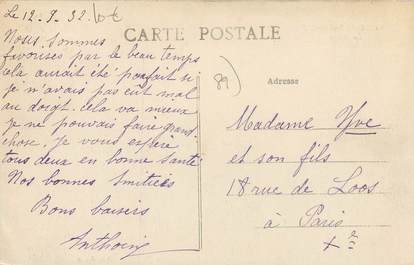 Le 12-9-32
CARTE POSTALE
Nous sommes
favorisés par le beau temps
cela aurait été parfait si
je n'avais pas eût mal
au doigt. Cela va mieux
je ne pouvais faire grand
chose. Je vous espère
tous deux en bonne santé
Nos bonnes Amitiés
Bons baisers
89)
Adresse
Madame Yve
et son fils
18 rue de Loos
à Paris
X e